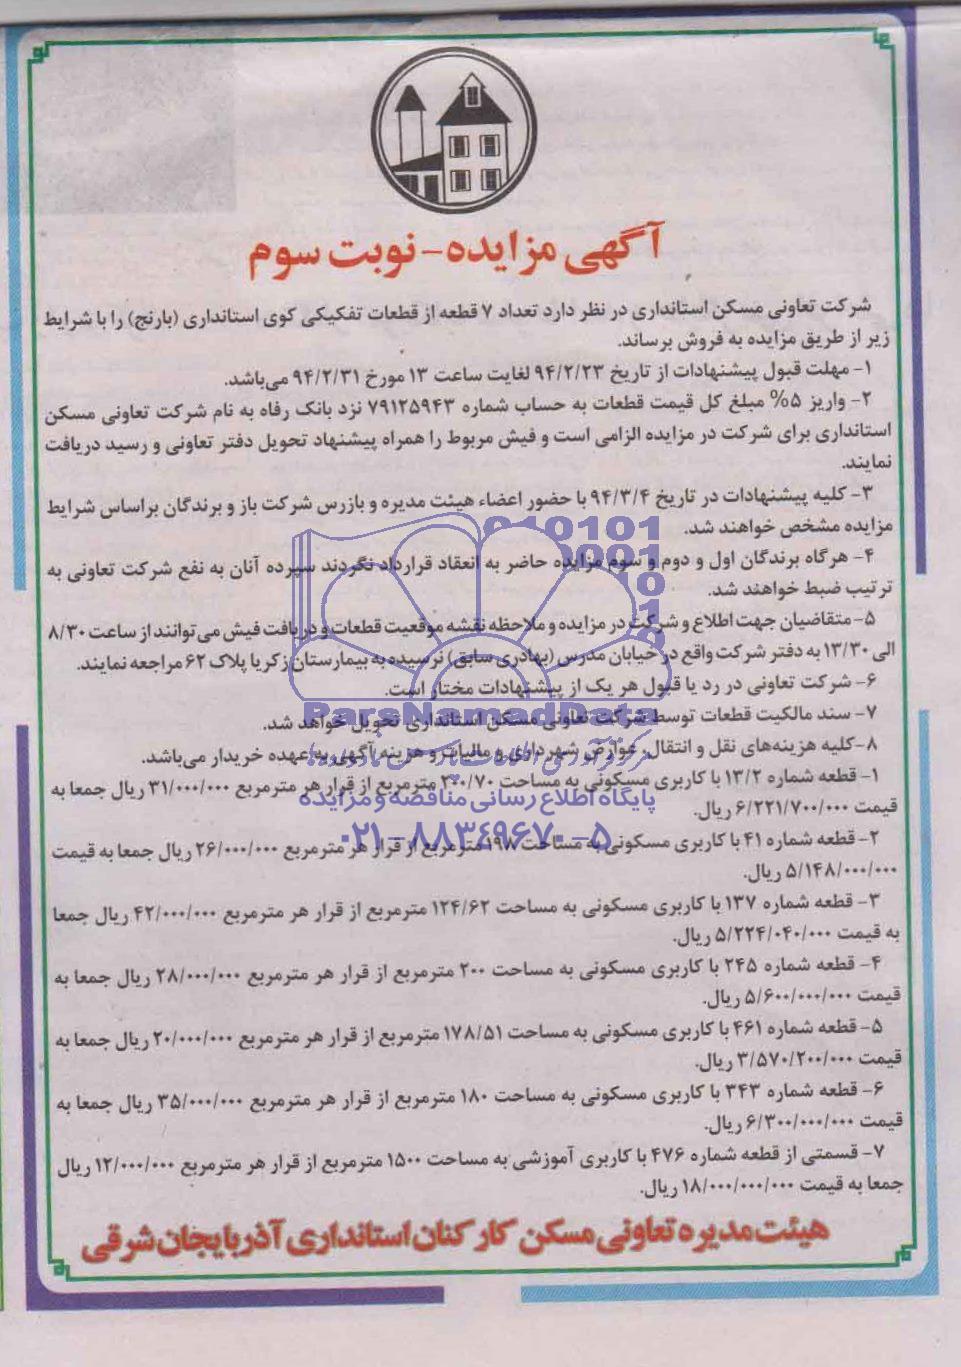 آگهی مزایده - نوبت سوم
شرکت تعاونی مسکن استانداری در نظر دارد تعداد ۷ قطعه از قطعات تفکیکی کوی استانداری (بارنج) را با شرایط
زیر از طریق مزایده به فروش برساند.
۱- مهلت قبول پیشنهادات از تاریخ ۹۴/۲/۲۳ لغایت ساعت ۱۳ مورخ ۹۴/۲/۳۱ می‌باشد.
۲- واریز ۵% مبلغ کل قیمت قطعات به حساب شماره ۷۹۱۲۵۹۴۳ نزد بانک رفاه به نام شرکت تعاونی مسکن
استانداری برای شرکت در مزایده الزامی است و فیش مربوط را همراه پیشنهاد تحویل دفتر تعاونی و رسید دریافت
نمایند.
۳- کلیه پیشنهادات در تاریخ ۹۴/۳/۴ با حضور اعضاء هیئت مدیره و بازرس شرکت باز و برندگان براساس شرایط
مزایده مشخص خواهند شد.
۴- هرگاه برندگان اول و دوم و سوم مزایده حاضر به انعقاد قرارداد نگردند سپرده آنان به نفع شرکت تعاونی به
ترتیب ضبط خواهند شد.
۵- متقاضیان جهت اطلاع و شرکت در مزایده و ملاحظه نقشه موقعیت قطعات و دریافت فیش می‌توانند از ساعت ۸/۳۰
الی ۱۳/۳۰ به دفتر شرکت واقع در خیابان مدرس (بهادری سابق) نرسیده به بیمارستان زکریا پلاک ۶۲ مراجعه نمایند.
۶- شرکت تعاونی در رد یا قبول هر یک از پیشنهادات مختار است.
ParsNamadData
۷- سند مالکیت قطعات توسط شرکت تعاونی مسکن استانداری تحویل خواهد شد.
۸-کلیه هزینه‌های نقل و انتقال، عوارض شهرداری و مالیات و هزینه آگهی به عهده خریدار می‌باشد.
۱- قطعه شماره ۱۳/۲ با کاربری مسکونی به مساحت ۲۰۰/۷۰ مترمربع از قرار هر مترمربع ۳۱/۰۰۰/۰۰۰ ریال جمعا به
پایگاه اطلاع رسانی مناقصه و مزایده
قیمت ۶/۲۲۱/۷۰۰/۰۰۰ ریال.
۰۲۱-۸۸۳۴۹۶۷۰-۵
۲- قطعه شماره ۴۱ با کاربری مسکونی به مساحت ۱۹۸ مترمربع از قرار هر مترمربع ۲۶/۰۰۰/۰۰۰ ریال جمعا به قیمت
۵/۱۴۸/۰۰۰/۰۰۰ ریال.
۳- قطعه شماره ۱۳۷ با کاربری مسکونی به مساحت ۱۲۴/۶۲ مترمربع از قرار هر مترمربع ۴۲/۰۰۰/۰۰۰ ریال جمعا
به قیمت ۵/۲۲۴/۰۴۰/۰۰۰ ریال.
۴- قطعه شماره ۲۴۵ با کاربری مسکونی به مساحت ۲۰۰ مترمربع از قرار هر مترمربع ۲۸/۰۰۰/۰۰۰ ریال جمعا به
قیمت ۵/۶۰۰/۰۰۰/۰۰۰ ریال.
۵- قطعه شماره ۴۶۱ با کاربری مسکونی به مساحت ۱۷۸/۵۱ مترمربع از قرار هر مترمربع ۲۰/۰۰۰/۰۰۰ ریال جمعا به
قیمت ۳/۵۷۰/۲۰۰/۰۰۰ ریال.
۶- قطعه شماره ۳۴۳ با کاربری مسکونی به مساحت ۱۸۰ مترمربع از قرار هر مترمربع ۳۵/۰۰۰/۰۰۰ ریال جمعا به
قیمت ۶/۳۰۰/۰۰۰/۰۰۰ ریال.
۷- قسمتی از قطعه شماره ۴۷۶ با کاربری آموزشی به مساحت ۱۵۰۰ مترمربع از قرار هر مترمربع ۱۲/۰۰۰/۰۰۰ ریال
جمعا به قیمت ۱۸/۰۰۰/۰۰۰/۰۰۰ ریال.
هیئت مدیره تعاونی مسکن کارکنان استانداری آذربایجان شرقی